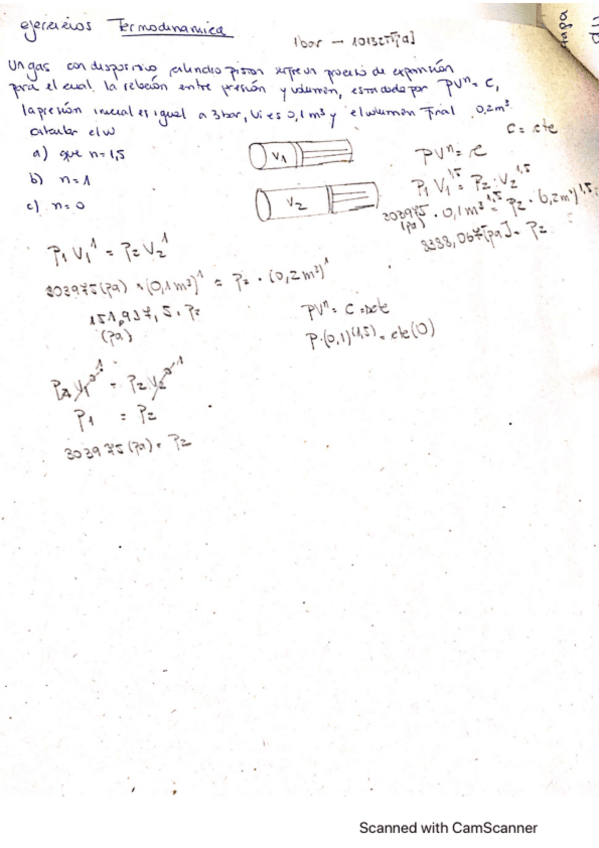 ejercicios Termodinamica
1bar - 101325[Pa]
Un gas con dispositivo cilindro piston sufre un proceso de expansión
para el cual la relación entre presión y volumen, esta dada por PVⁿ = C,
la presión inicial es igual a 3 bar, Vi es 0,1 m³ y el volumen final 0,2 m³
calcular el w
C = cte
a) que n=1,5
b) n=1
c) n=0
V1
V2
PVⁿ = C
P1 V1^1,5 = P2 . V2^1,5
303975 (Pa) . 0,1 m³^1,5 = P2 . (0,2 m³)^1,5
P1 V1^1 = P2 V2^1
303975 (Pa) * (0,1 m³)^1 = P2 . (0,2 m³)^1
151,987,5 . P2
(Pa)
PVⁿ = C = cte
P.(0,1)^(1,5) = cte (0)
P1 = P2
303975 (Pa) = P2
Scanned with CamScanner